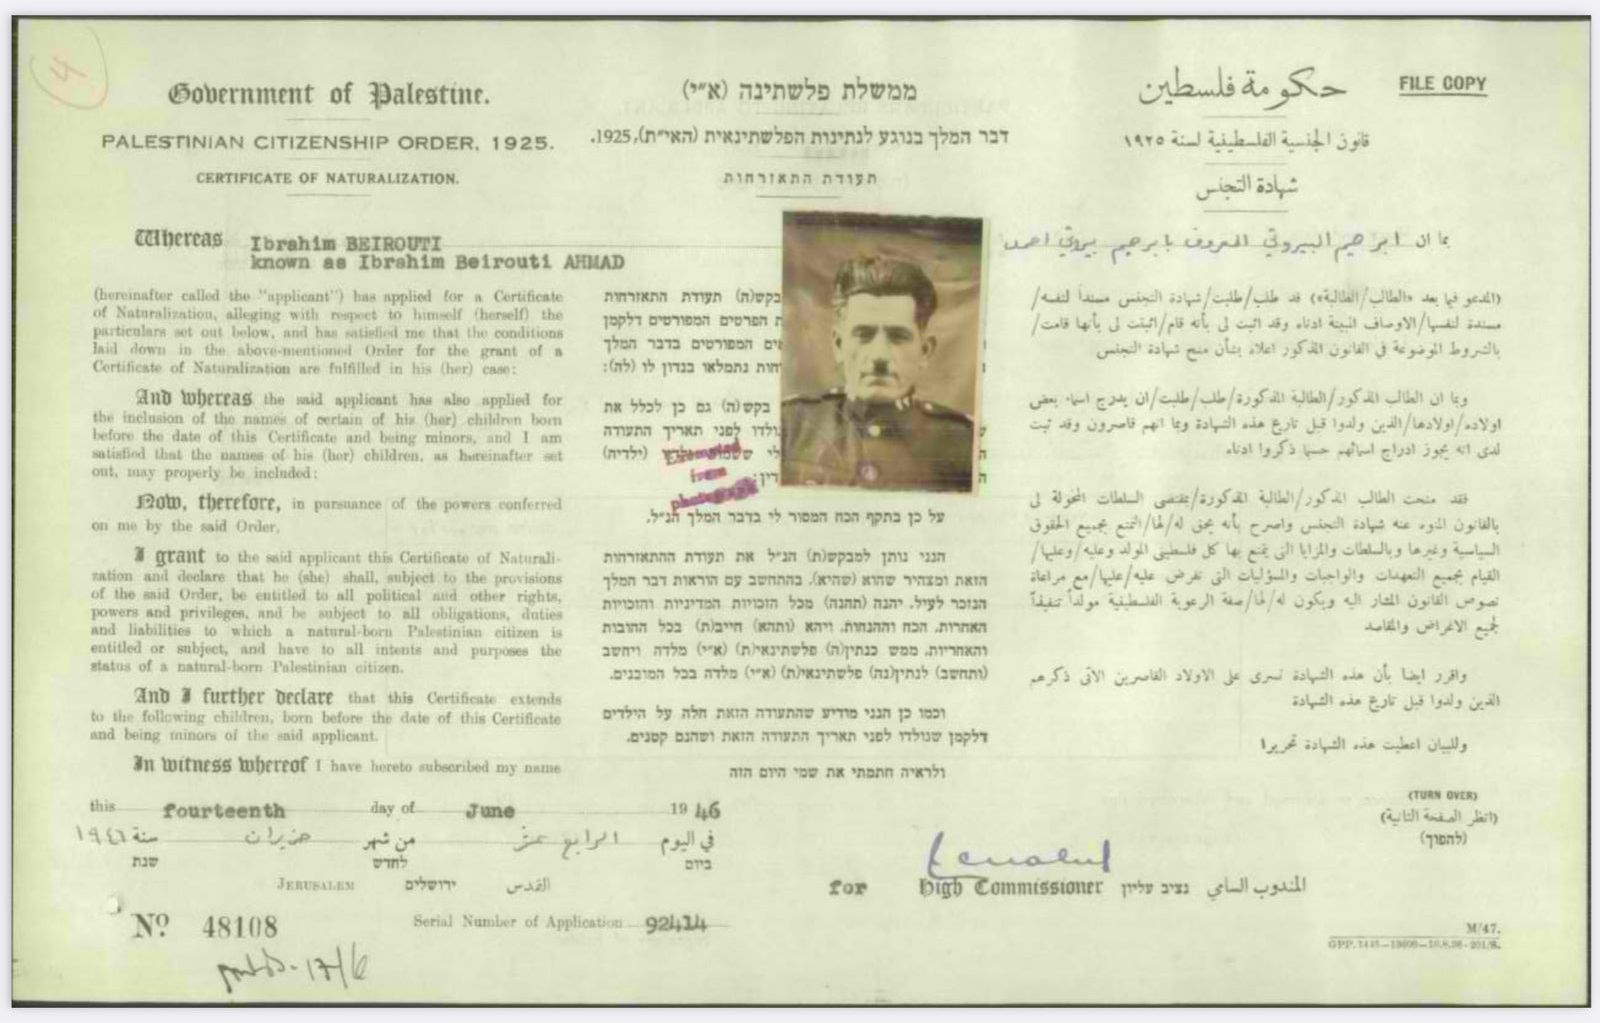 4
Government of Palestine.
PALESTINIAN CITIZENSHIP ORDER, 1925.
CERTIFICATE OF NATURALIZATION.
ממשלת פלשתינה (א״י)
דבר המלך בנוגע לנתינות הפלשתינאית (האי״ת), 1925.
תעודת התאזרחות
حكومة فلسطين
قانون الجنسية الفلسطينية لسنة ١٩٢٥
شهادة التجنس
FILE COPY
Whereas Ibrahim BEIROUTI
known as Ibrahim Beirouti AHMAD
(hereinafter called the "applicant") has applied for a Certificate
of Naturalization, alleging with respect to himself (herself) the
particulars set out below, and has satisfied me that the conditions
laid down in the above-mentioned Order for the grant of a
Certificate of Naturalization are fulfilled in his (her) case:
And whereas the said applicant has also applied for
the inclusion of the names of certain of his (her) children born
before the date of this Certificate and being minors, and I am
satisfied that the names of his (her) children, as hereinafter set
out, may properly be included:
Now, therefore, in pursuance of the powers conferred
on me by the said Order,
I grant to the said applicant this Certificate of Naturali-
zation and declare that he (she) shall, subject to the provisions
of the said Order, be entitled to all political and other rights,
powers and privileges, and be subject to all obligations, duties
and liabilities to which a natural-born Palestinian citizen is
entitled or subject, and have to all intents and purposes the
status of a natural-born Palestinian citizen.
And I further declare that this Certificate extends
to the following children, born before the date of this Certificate
and being minors of the said applicant.
In witness whereof I have hereto subscribed my name
בקש(ה) תעודת התאזרחות
ת הפרטים המפורטים דלקמן
אים המפורטים בדבר המלך
רחות נתמלאו בנדון לו (לה):
בקש(ה) גם כן לכלל את
נולדו לפני תאריך התעודה
לי ששמות ילדיו (ילדיה)
דין:
from
photograph
על כן בתקף הכח המסור לי בדבר המלך הנ״ל,
הנני נותן למבקש(ת) הנ״ל את תעודת ההתאזרחות
הזאת ומצהיר שהוא (שהיא), בהתחשב עם הוראות דבר המלך
הנזכר לעיל, יהנה (תהנה) מכל הזכויות המדיניות והזכויות
האחרות, הכח וההנחות, ויהא (ותהא) חייב(ת) בכל החובות
והאחריות, ממש כנתין(ה) פלשתינאי(ת) (א״י) מלדה ויחשב
(ותחשב) לנתין(נה) פלשתינאי(ת) (א״י) מלדה בכל המובנים.
וכמו כן הנני מודיע שהתעודה הזאת חלה על הילדים
דלקמן שנולדו לפני תאריך התעודה הזאת ושהנם קטנים.
ולראיה חתמתי את שמי היום הזה
بما ان ابرهيم البيروتي المعروف بابرهيم بيروتي احمد
(المدعو فيما بعد «الطالب/الطالبة») قد طلب/طلبت/شهادة التجنس مسنداً لنفسه/
مسندة لنفسها/الاوصاف المبينة ادناه وقد اثبت لى بأنه قام/اثبتت لى بأنها قامت/
بالشروط الموضوعة في القانون المذكور اعلاه بشأن منح شهادة التجنس
وبما ان الطالب المذكور/الطالبة المذكورة/طلب/طلبت/ان يدرج اسماء بعض
اولاده/اولادها/الذين ولدوا قبل تاريخ هذه الشهادة وبما انهم قاصرون وقد ثبت
لدى انه يجوز ادراج اسمائهم حسبما ذكروا ادناه
فقد منحت الطالب المذكور/الطالبة المذكورة/بمقتضى السلطات المخولة لى
بالقانون المنوه عنه شهادة التجنس واصرح بأنه يحق له/لها/التمتع بجميع الحقوق
السياسية وغيرها وبالسلطات والمزايا التى يتمتع بها كل فلسطينى المولد وعليه/وعليها/
القيام بجميع التعهدات والواجبات والمسؤليات التى تفرض عليه/عليها/مع مراعاة
نصوص القانون المشار اليه ويكون له/لها/صفة الرعوية الفلسطينية مولداً تنفيذاً
لجميع الاغراض والمقاصد
واقرر ايضا بأن هذه الشهادة تسرى على الاولاد القاصرين الآتى ذكرهم
الذين ولدوا قبل تاريخ هذه الشهادة
وللبيان اعطيت هذه الشهادة تحريرا
this fourteenth day of June 1946
في اليوم الرابع عشر من شهر حزيران سنة ١٩٤٦
ביום לחדש שנת
JERUSALEM ירושלים القدس
(TURN OVER)
(انظر الصفحة الثانية)
(להפוך)
for High Commissioner נציב עליון المندوب السامي
No 48108
Serial Number of Application 92414
17/6
M/47.